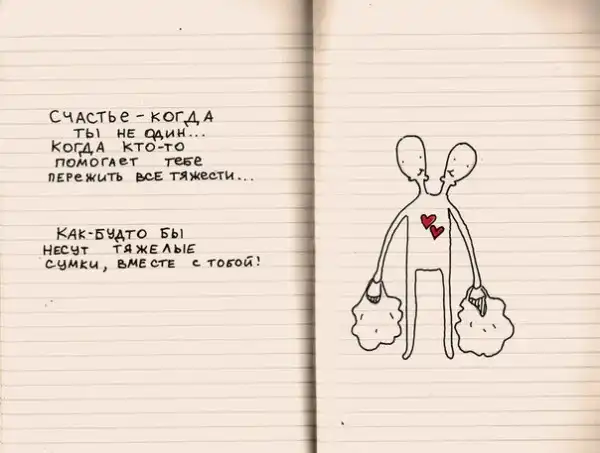 СЧАСТЬЕ - КОГДА
ТЫ НЕ ОДИН...
КОГДА КТО-ТО
ПОМОГАЕТ ТЕБЕ
ПЕРЕЖИТЬ ВСЕ ТЯЖЕСТИ...
КАК-БУДТО БЫ
НЕСУТ ТЯЖЕЛЫЕ
СУМКИ, ВМЕСТЕ С ТОБОЙ!